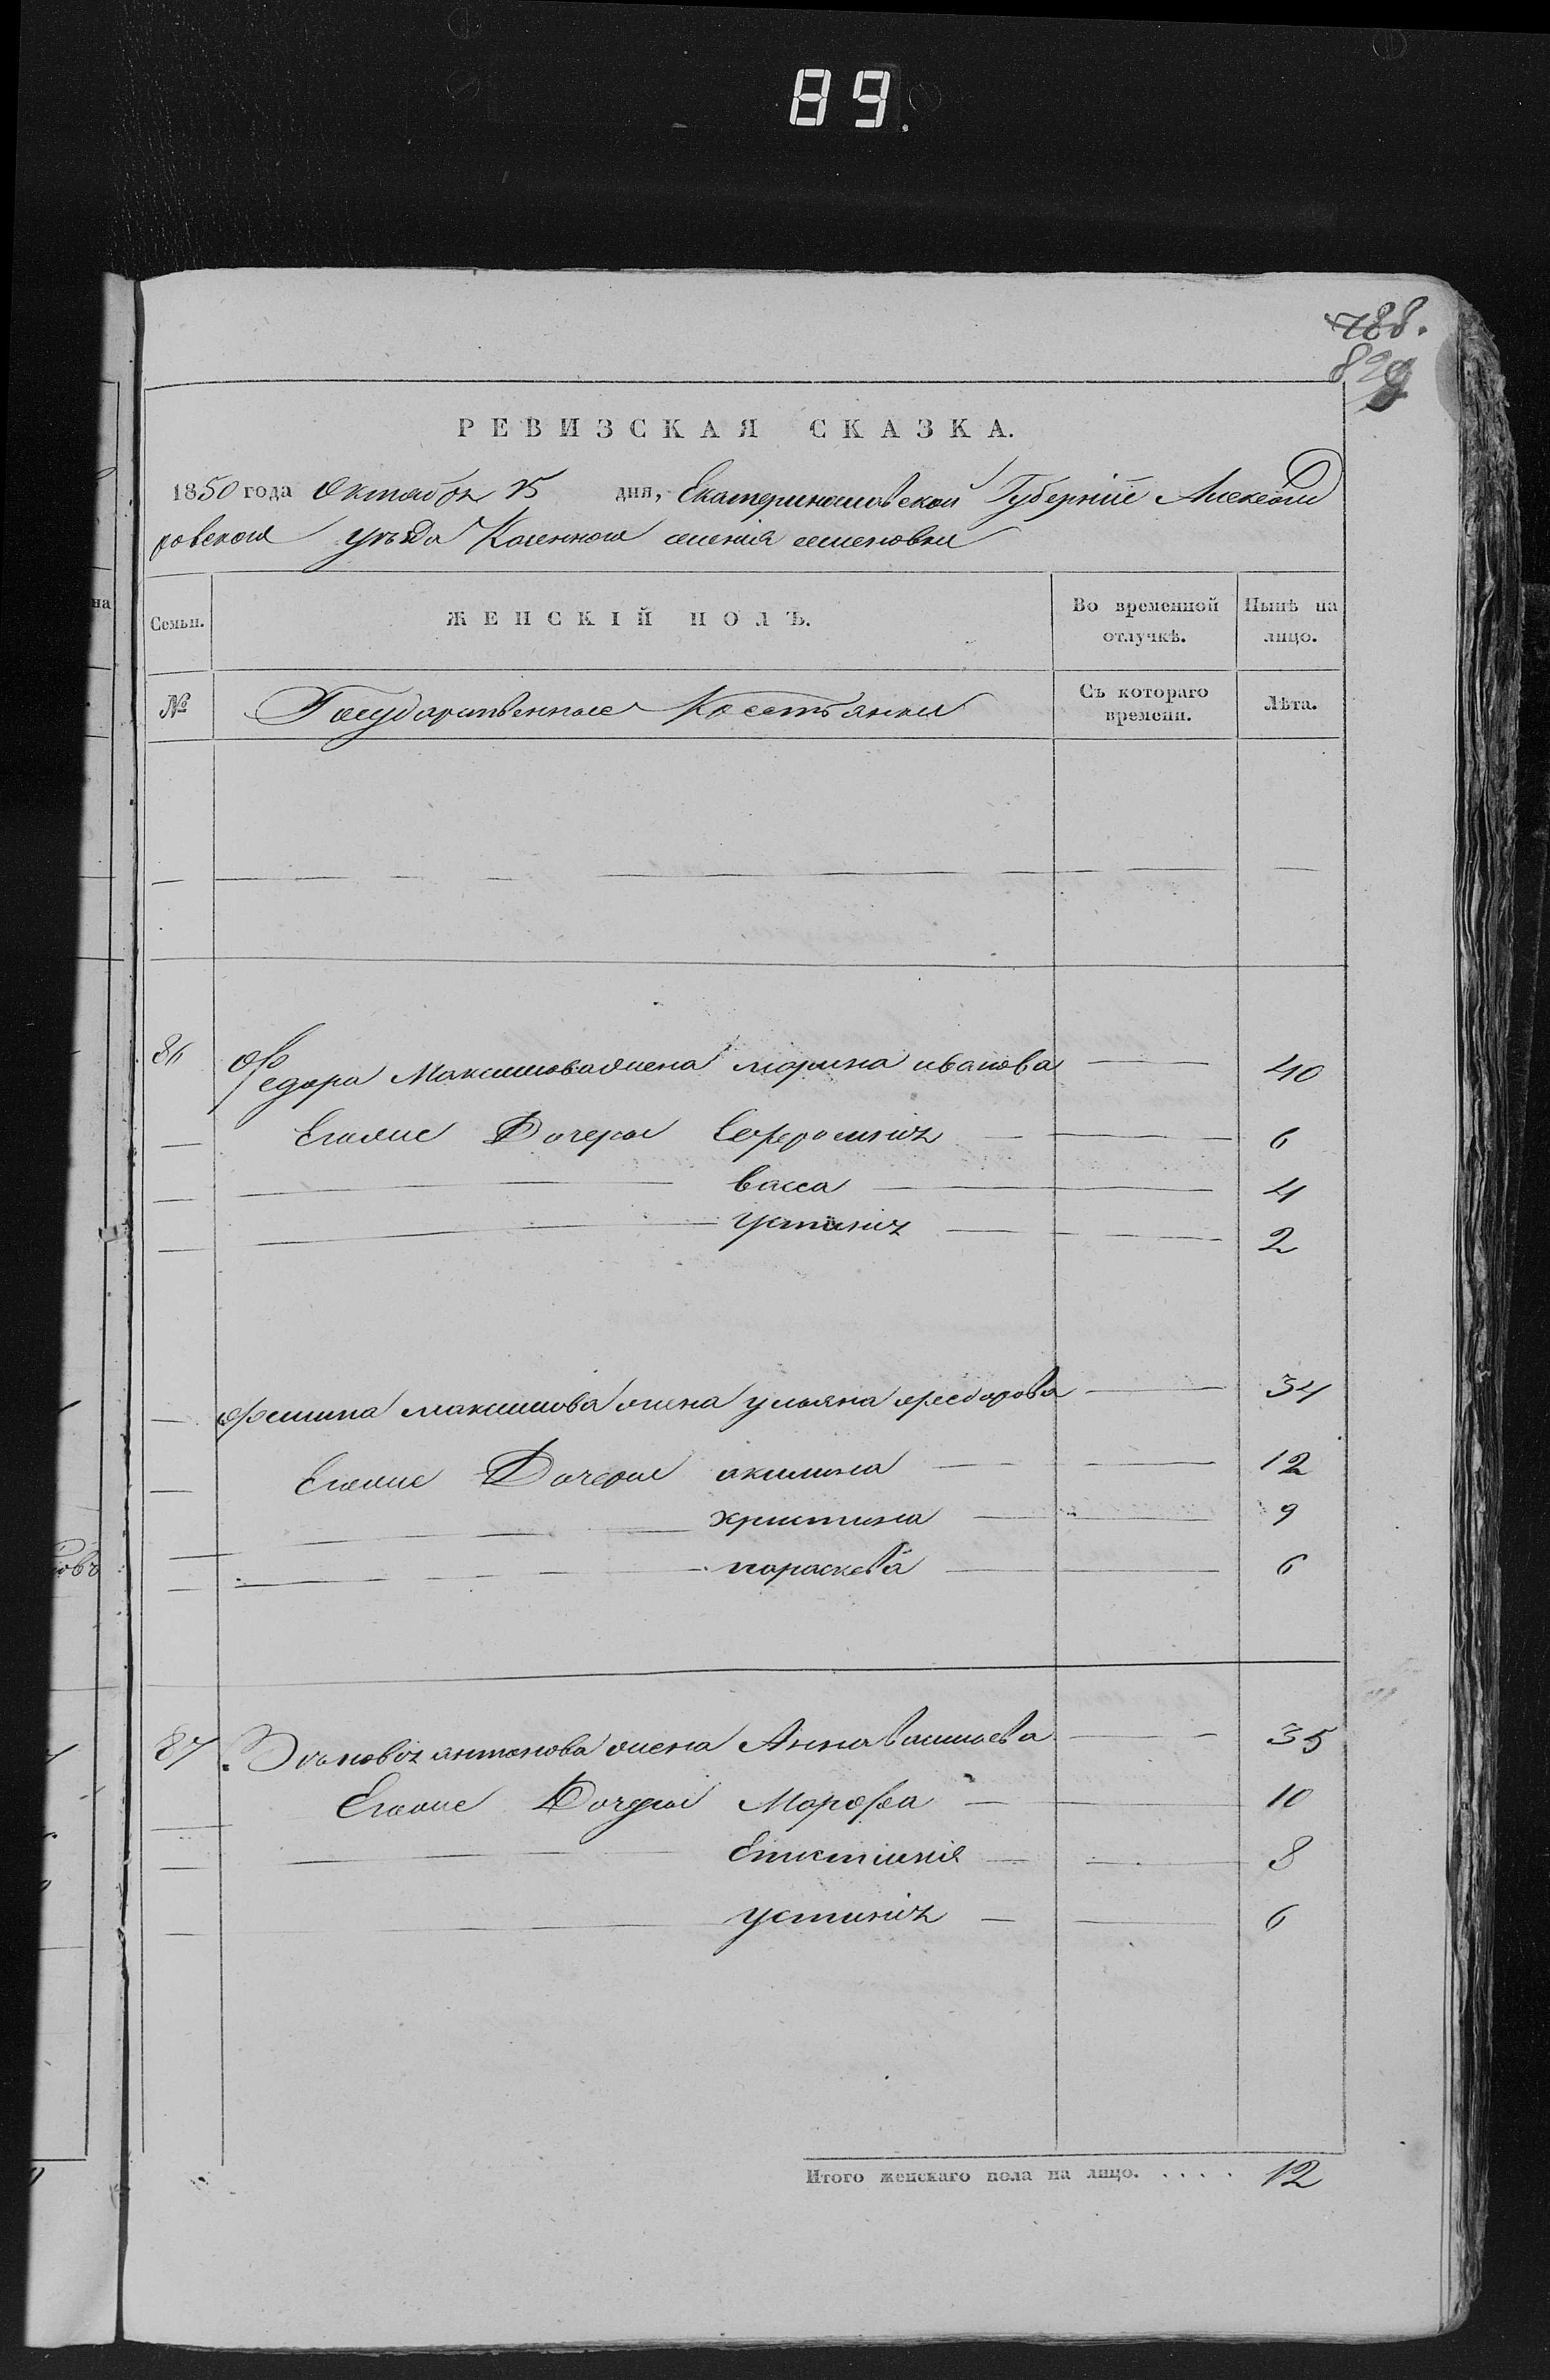 89.
788.
829
РЕВИЗСКАЯ СКАЗКА.
1850 года Октября 25 дня, Екатеринославской Губерніи Александ
ровскаго уѣзда Казеннаго селенія семеновки
Семьи. ЖЕНСКІЙ ПОЛЪ. Во временной отлучкѣ. Нынѣ на лицо.
№ Государственные Крестьянки Съ котораго времени. Лѣта.
86 федора Максимова жена марина иванова 40
Егоже Дочери Ефросинія 6
васса 4
Устинія 2
фомина максимова жена ульяна федорова 34
Егоже Дочери акилина 12
христина 9
параскева 6
87 Зиновія антонова жена Анна василева 35
Егоже Дочери Марфа 10
Епистимія 8
устинія 6
Итого женскаго пола на лицо. .... 12